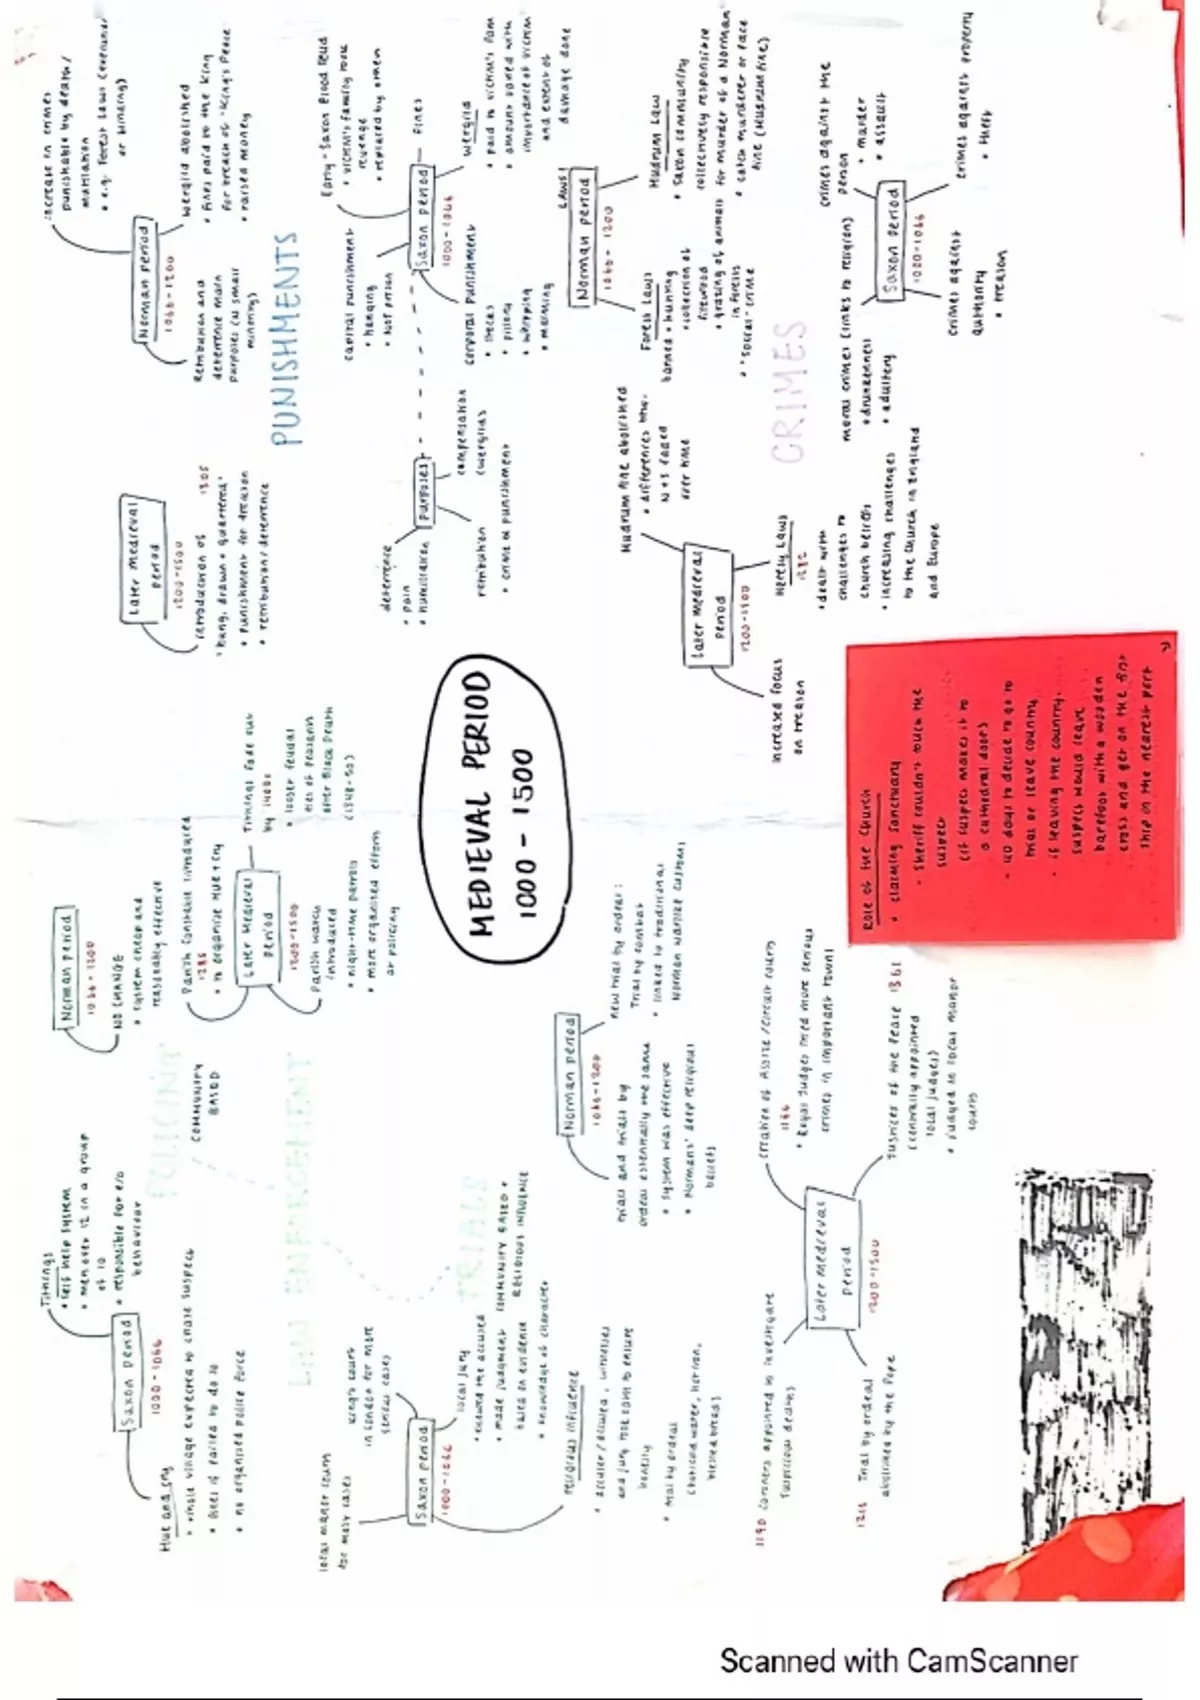 MEDIEVAL PERIOD
1000 - 1500
POLICING
COMMUNITY
BASED
Saxon period
1000-1066
Tithings
• self help system
• men over 12 in a group
of 10
• responsible for e/o
behaviour
Hue and cry
• whole village expected to chase suspect
• fines if failed to do so
• no organised police force
Norman period
1066-1200
NO CHANGE
• system cheap and
reasonably effective
Later Medieval
period
1200-1500
Parish Constable introduced
1285
• to organise Hue + Cry
Tithings fade out
by 1400s
• looser feudal
ties of peasants
after Black Death
(1348-50)
Parish watch
introduced
• night-time patrols
• more organised efforts
at policing
LAW ENFORCEMENT
TRIALS
COMMUNITY BASED +
RELIGIOUS INFLUENCE
Saxon period
1000-1066
local manor court
for most cases
King's court
in London for more
serious cases
local jury
• knew the accused
• made judgment
based on evidence
+ knowledge of character
religious influence
• accuser / accused, witnesses
and jury took oath to ensure
honesty
• trial by ordeal
(hot/cold water, hot iron,
blessed bread)
Norman period
1066-1200
trials and trials by
ordeal essentially the same
• system was effective
• Normans' deep religious
beliefs
new trial by ordeal:
Trial by combat
• linked to traditional
Norman warlike customs
Later Medieval
period
1200-1500
Creation of Assize / circuit courts
1166
• Royal judges tried more serious
crimes in important towns
Justices of the Peace 1361
(centrally appointed
local judges)
• judged in local manor
courts
1190 Coroners appointed to investigate
suspicious deaths
1215 Trial by ordeal
abolished by the Pope
PUNISHMENTS
Later medieval
period
1200-1500
introduction of 1305
'hung, drawn + quartered'
• punishment for treason
• retribution / deterrence
Norman period
1066-1200
increase in crimes
punishable by death /
mutilation
• e.g. Forest Laws (execution
or blinding)
Wergild abolished
• fines paid to the king
for breach of 'King's Peace'
• raised money
Retribution and
deterrence main
purposes (as small
minority)
Saxon period
1000-1066
Early-Saxon Blood Feud
• victim's family took
revenge
• replaced by
Fines
wergild
• paid to victim's fam
• amount varied with
importance of victim
and extent of
damage done
capital punishment
• hanging
• not prison
corporal punishment
• stocks
• pillory
• whipping
• maiming
purposes
deterrence
• pain
• humiliation
compensation
(wergild)
retribution
• crime = punishment
CRIMES
LAWS!
Norman period
1066-1200
Forest Laws
banned • hunting
• collection of
firewood
• grazing of animals
in forests
• 'social' crime
Murdrum Law
• Saxon community
collectively responsible
for murder of a Norman
• catch murderer or face
fine (Murdrum fine)
Saxon period
1000-1066
crimes against the
person
• murder
• assault
crimes against property
• theft
crimes against
authority
• treason
moral crimes (links to religion)
• drunkenness
• adultery
Later medieval
period
1200-1500
Murdrum fine abolished
• differences btw.
N + S faded
over time
Heresy Laws
1382
• dealt with
challenges to
Church beliefs
• increasing challenges
to the Church in England
and Europe
increased focus
on treason
Role of the Church
• Claiming Sanctuary
• Sheriff couldn't touch the
suspect
(if suspect makes it to
a cathedral doors)
• 40 days to decide to go to
trial or leave country
• if leaving the country,
suspect would leave
barefoot with a wooden
cross and get on the first
ship in the nearest port
Scanned with CamScanner